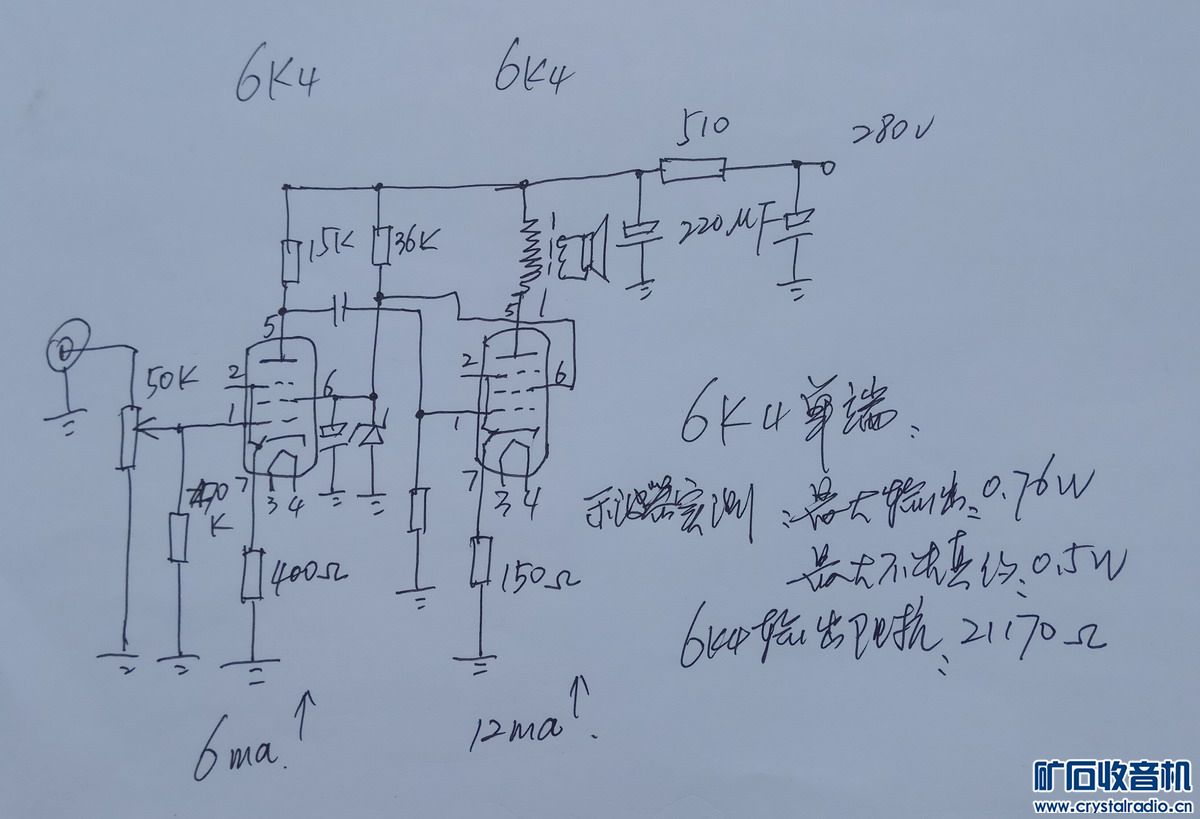 6K4
6K4
510
280V
15K
36K
220μF
5
5
1
50K
2
6
1
2
6
1
7
3
4
7
3
4
470
K
400Ω
150Ω
6K4单端
示波器实测:最大输出:0.76W
最大不失真约:0.5W
6K4输出阻抗:21170Ω
6ma.
12ma.
矿石收音机
www.crystalradio.cn